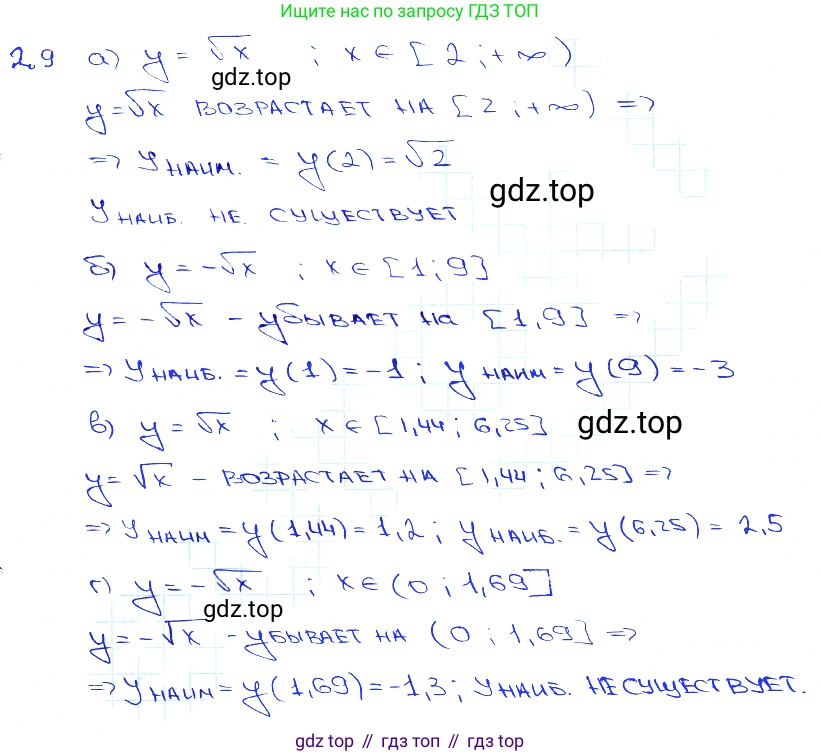 Ищите нас по запросу ГДЗ ТОП
2.9 а) y = √x ; x ∈ [2 ; +∞)
gdz.top
y = √x ВОЗРАСТАЕТ НА [2 ; +∞) =>
=> y НАИМ. = y(2) = √2
gdz.top
y НАИБ. НЕ. СУЩЕСТВУЕТ
б) y = -√x ; x ∈ [1 ; 9]
y = -√x - убывает на [1, 9] =>
=> y НАИБ. = y(1) = -1 ; y НАИМ = y(9) = -3
в) y = √x ; x ∈ [1,44 ; 6,25]
gdz.top
y = √x - ВОЗРАСТАЕТ НА [1,44 ; 6,25] =>
=> y НАИМ = y(1,44) = 1,2 ; y НАИБ. = y(6,25) = 2,5
г) y = -√x ; x ∈ (0 ; 1,69]
gdz.top
y = -√x - УБЫВАЕТ НА (0 ; 1,69] =>
=> y НАИМ = y(1,69) = -1,3 ; y НАИБ. НЕ СУЩЕСТВУЕТ.
gdz top // гдз топ // gdz top